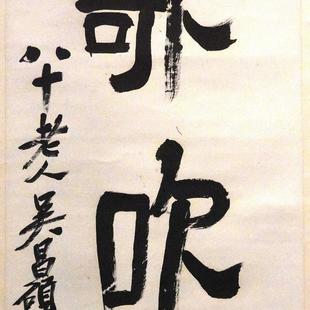 歌吹
八十老人吴昌碩